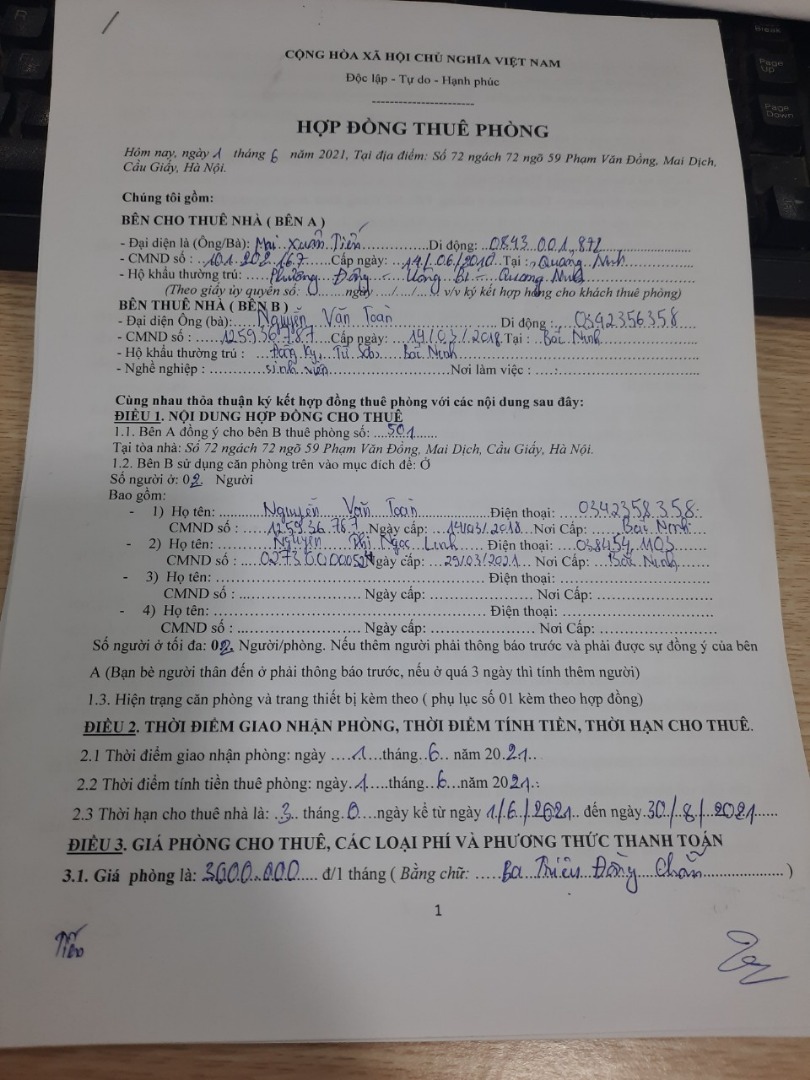 CỘNG HÒA XÃ HỘI CHỦ NGHĨA VIỆT NAM
Độc lập - Tự do - Hạnh phúc
HỢP ĐỒNG THUÊ PHÒNG
Hôm nay, ngày 1 tháng 6 năm 2021, Tại địa điểm: Số 72 ngách 72 ngõ 59 Phạm Văn Đồng, Mai Dịch,
Cầu Giấy, Hà Nội.
Chúng tôi gồm:
BÊN CHO THUÊ NHÀ ( BÊN A )
- Đại diện là (Ông/Bà): Mai Xuân Tiến Di động: 0843.001.872
- CMND số : 101.202.167 Cấp ngày: 14/06/2010 Tại : Quảng Ninh
- Hộ khẩu thường trú: Phương Đông - Uông Bí - Quảng Ninh
(Theo giấy ủy quyền số: ngày …/…/… v/v ký kết hợp hàng cho khách thuê phòng)
BÊN THUÊ NHÀ ( BÊN B )
- Đại diện Ông (bà): Nguyễn Văn Toàn Di động : 0342356358
- CMND số : 125936787 Cấp ngày: 14/03/2018 Tại : Bắc Ninh
- Hộ khẩu thường trú : Từ Sơn Bắc Ninh
- Nghề nghiệp : sinh viên Nơi làm việc :
Cùng nhau thỏa thuận ký kết hợp đồng thuê phòng với các nội dung sau đây:
ĐIỀU 1. NỘI DUNG HỢP ĐỒNG CHO THUÊ
1.1. Bên A đồng ý cho bên B thuê phòng số: 501
Tại tòa nhà: Số 72 ngách 72 ngõ 59 Phạm Văn Đồng, Mai Dịch, Cầu Giấy, Hà Nội.
1.2. Bên B sử dụng căn phòng trên vào mục đích để: Ở
Số người ở: 02 Người
Bao gồm:
- 1) Họ tên: Nguyễn Văn Toàn Điện thoại: 0342358358
CMND số : 125936787 Ngày cấp: 14/03/2018 Nơi Cấp: Bắc Ninh
- 2) Họ tên: Nguyễn Thị Ngọc Linh Điện thoại: 038454.1103
CMND số : Ngày cấp: 29/03/2021 Nơi Cấp: Bắc Ninh
- 3) Họ tên: Điện thoại:
CMND số : Ngày cấp: Nơi Cấp:
- 4) Họ tên: Điện thoại:
CMND số : Ngày cấp: Nơi Cấp:
Số người ở tối đa: 02. Người/phòng. Nếu thêm người phải thông báo trước và phải được sự đồng ý của bên
A (Bạn bè người thân đến ở phải thông báo trước, nếu ở quá 3 ngày thì tính thêm người)
1.3. Hiện trạng căn phòng và trang thiết bị kèm theo ( phụ lục số 01 kèm theo hợp đồng)
ĐIỀU 2. THỜI ĐIỂM GIAO NHẬN PHÒNG, THỜI ĐIỂM TÍNH TIỀN, THỜI HẠN CHO THUÊ.
2.1 Thời điểm giao nhận phòng: ngày 1 tháng 6 năm 2021
2.2 Thời điểm tính tiền thuê phòng: ngày 1 tháng 6 năm 2021
2.3 Thời hạn cho thuê nhà là: 3 tháng 0 ngày kể từ ngày 1/6/2021 đến ngày 30/8/2021
ĐIỀU 3. GIÁ PHÒNG CHO THUÊ, CÁC LOẠI PHÍ VÀ PHƯƠNG THỨC THANH TOÁN
3.1. Giá phòng là: 3000.000 đ/1 tháng ( Bằng chữ: Ba Triệu Đồng Chẵn )
1
Tiến